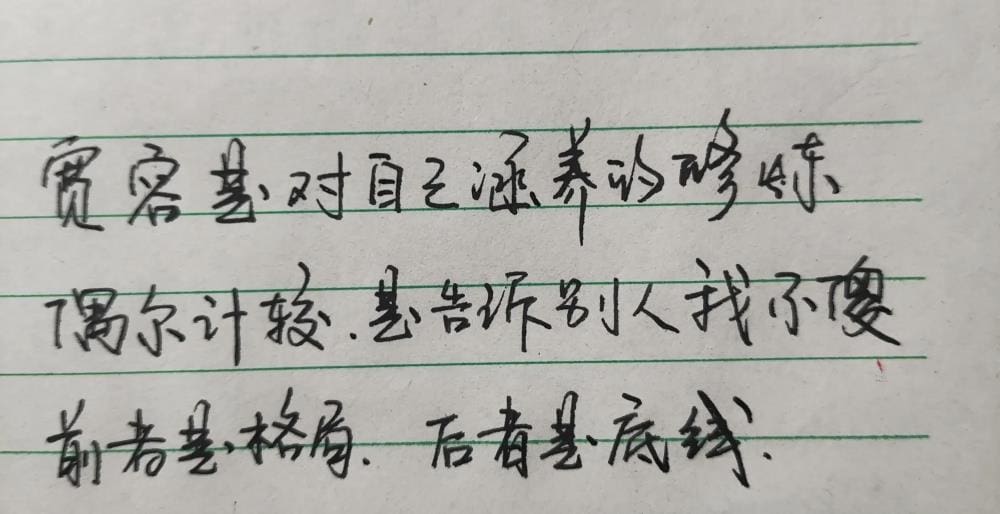 宽容是对自己涵养的修炼
偶尔计较.是告诉别人我不傻
前者是格局.后者是底线.